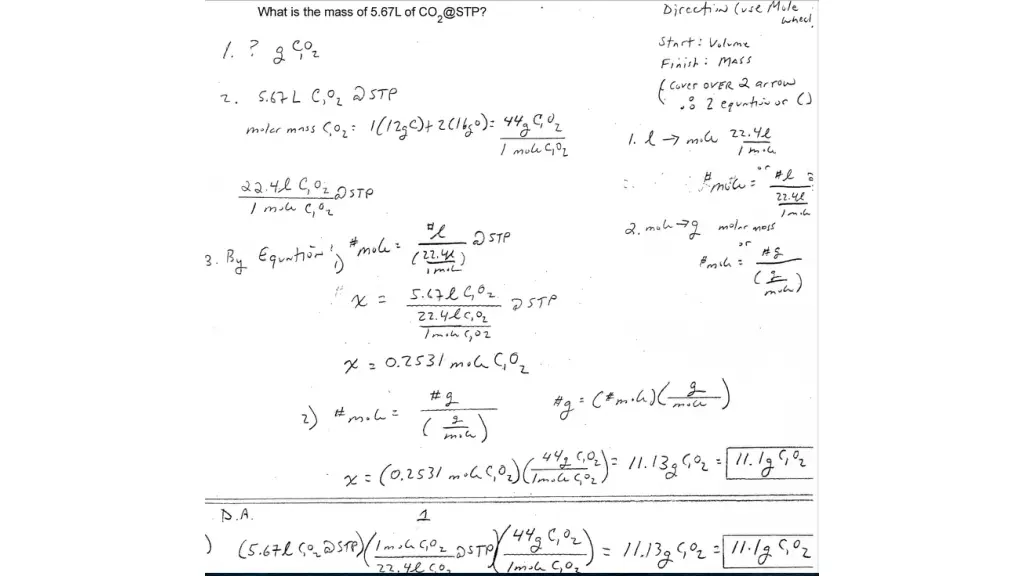 What is the mass of 5.67L of CO2@STP?
Direction (use Mole wheel)
Start: Volume
Finish: MASS
(Cover OVER 2 arrow
∴ 2 equation or ( )
1. ? g C1O2
2. 5.67 L C1O2 @ STP
molar mass C1O2: 1(12gC)+2(16gO)= 44g C1O2 / 1 mole C1O2
22.4l C1O2 / 1 mole C1O2 @ STP
1. l → mole 22.4l / 1 mole
or
# mole = #l / (22.4l / 1 mole)
2. mole → g molar mass
or
# mole = #g / (g / mole)
3. By Equation: 1) # mole = #l / (22.4l / 1 mole) @ STP
x = 5.67l C1O2 / (22.4l C1O2 / 1 mole C1O2) @ STP
x = 0.2531 mole C1O2
2) # mole = #g / (g / mole) #g = (# mole)(g / mole)
x = (0.2531 mole C1O2)(44g C1O2 / 1 mole C1O2) = 11.13g C1O2 = 11.1g C1O2
D.A. 1
) (5.67l C1O2 @ STP)(1 mole C1O2 / 22.4l C1O2 @ STP)(44g C1O2 / 1 mole C1O2) = 11.13g C1O2 = 11.1g C1O2